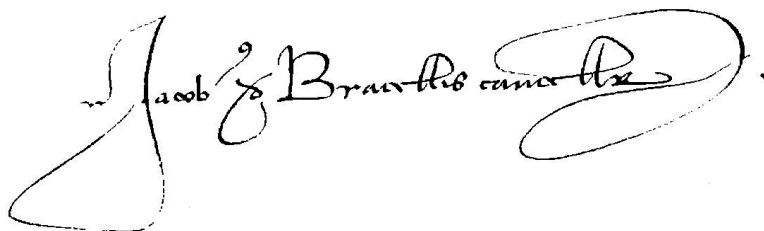 Jacob⁹ de Bracellis cancellr